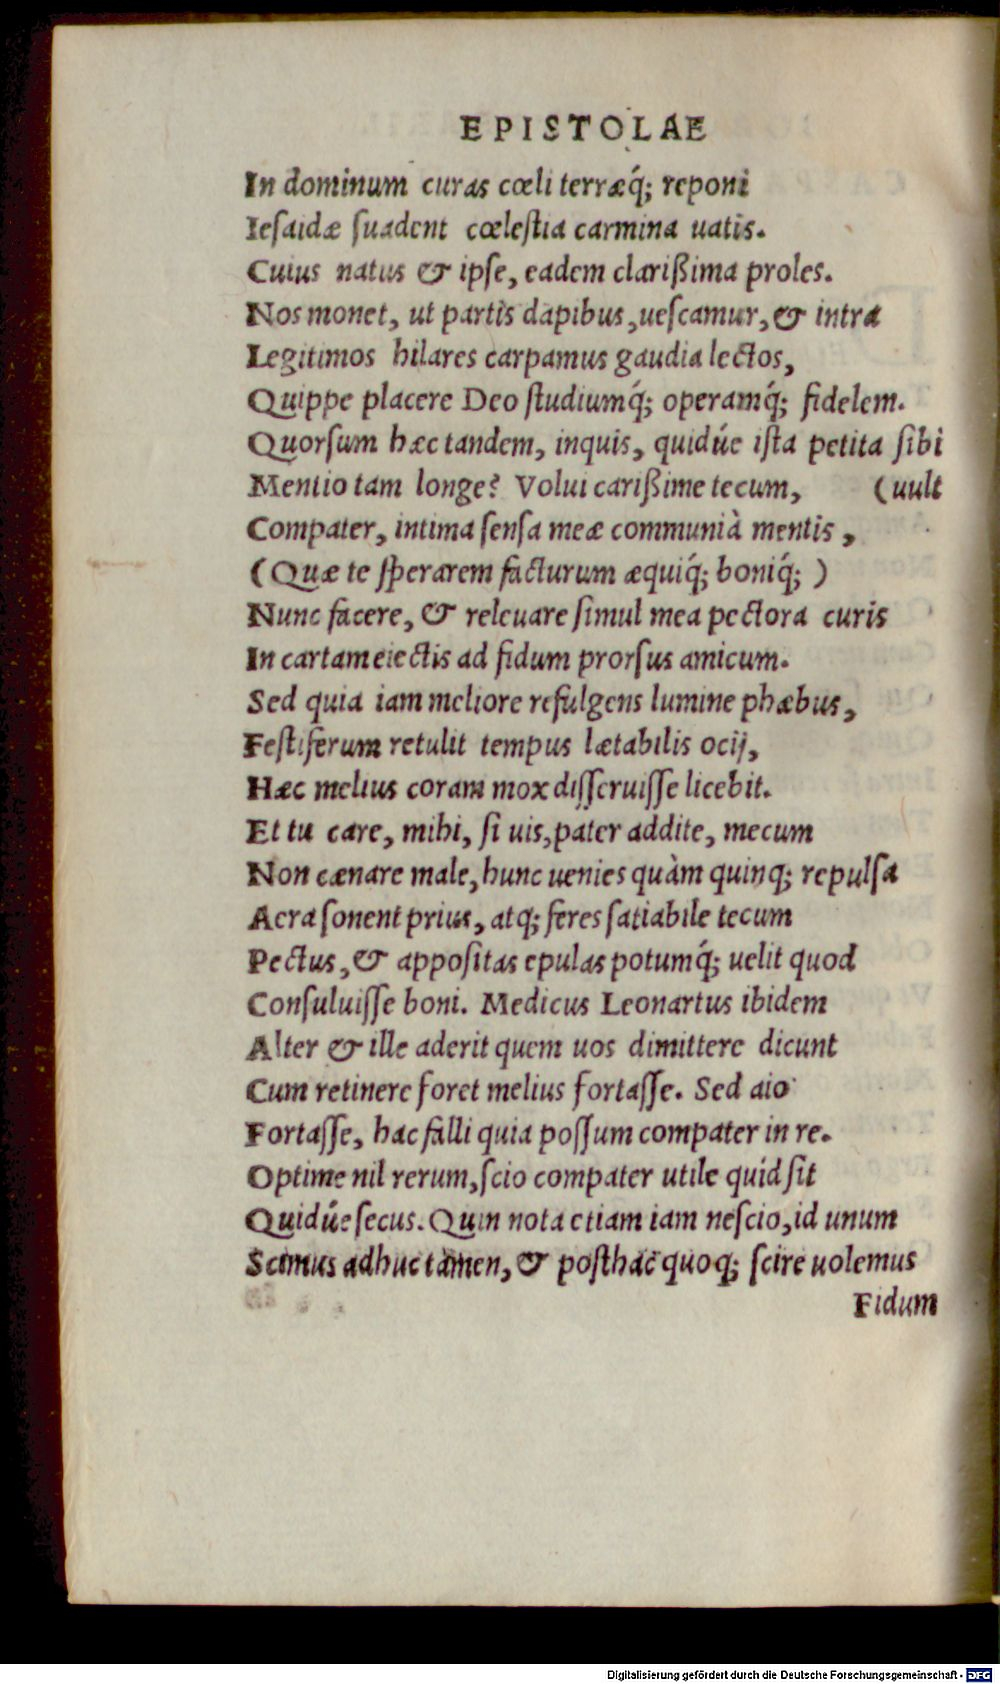 EPISTOLAE
In dominum curas cœli terræq́; reponi
Iesaidæ suadent cœlestia carmina uatis.
Cuius natus & ipse, eadem clarißima proles.
Nos monet, ut partis dapibus, uescamur, & intra
Legitimos hilares carpamus gaudia lectos,
Quippe placere Deo studiumq́; operamq́; fidelem.
Quorsum hæc tandem, inquis, quidúe ista petita sibi
Mentio tam longe? Volui carißime tecum, (uult
Compater, intima sensa meæ communià mentis,
(Quæ te sperarem facturum æquiq́; boniq́; )
Nunc facere, & releuare simul mea pectora curis
In cartam eiectis ad fidum prorsus amicum.
Sed quia iam meliore refulgens lumine phæbus,
Festiferum retulit tempus lætabilis ocij,
Hæc melius coram mox disseruisse licebit.
Et tu care, mihi, si uis, pater addite, mecum
Non cænare male, hunc uenies quàm quinq; repulsa
Aera sonent prius, atq; feres satiabile tecum
Pectus, & appositas epulas potumq́; uelit quod
Consuluisse boni. Medicus Leonartus ibidem
Alter & ille aderit quem uos dimittere dicunt
Cum retinere foret melius fortasse. Sed aio
Fortasse, hac falli quia possum compater in re.
Optime nil rerum, scio compater utile quid sit
Quidúe secus. Quin nota etiam iam nescio, id unum
Scimus adhuc tamen, & posthac quoq; scire uolemus
Fidum
Digitalisierung gefördert durch die Deutsche Forschungsgemeinschaft - DFG